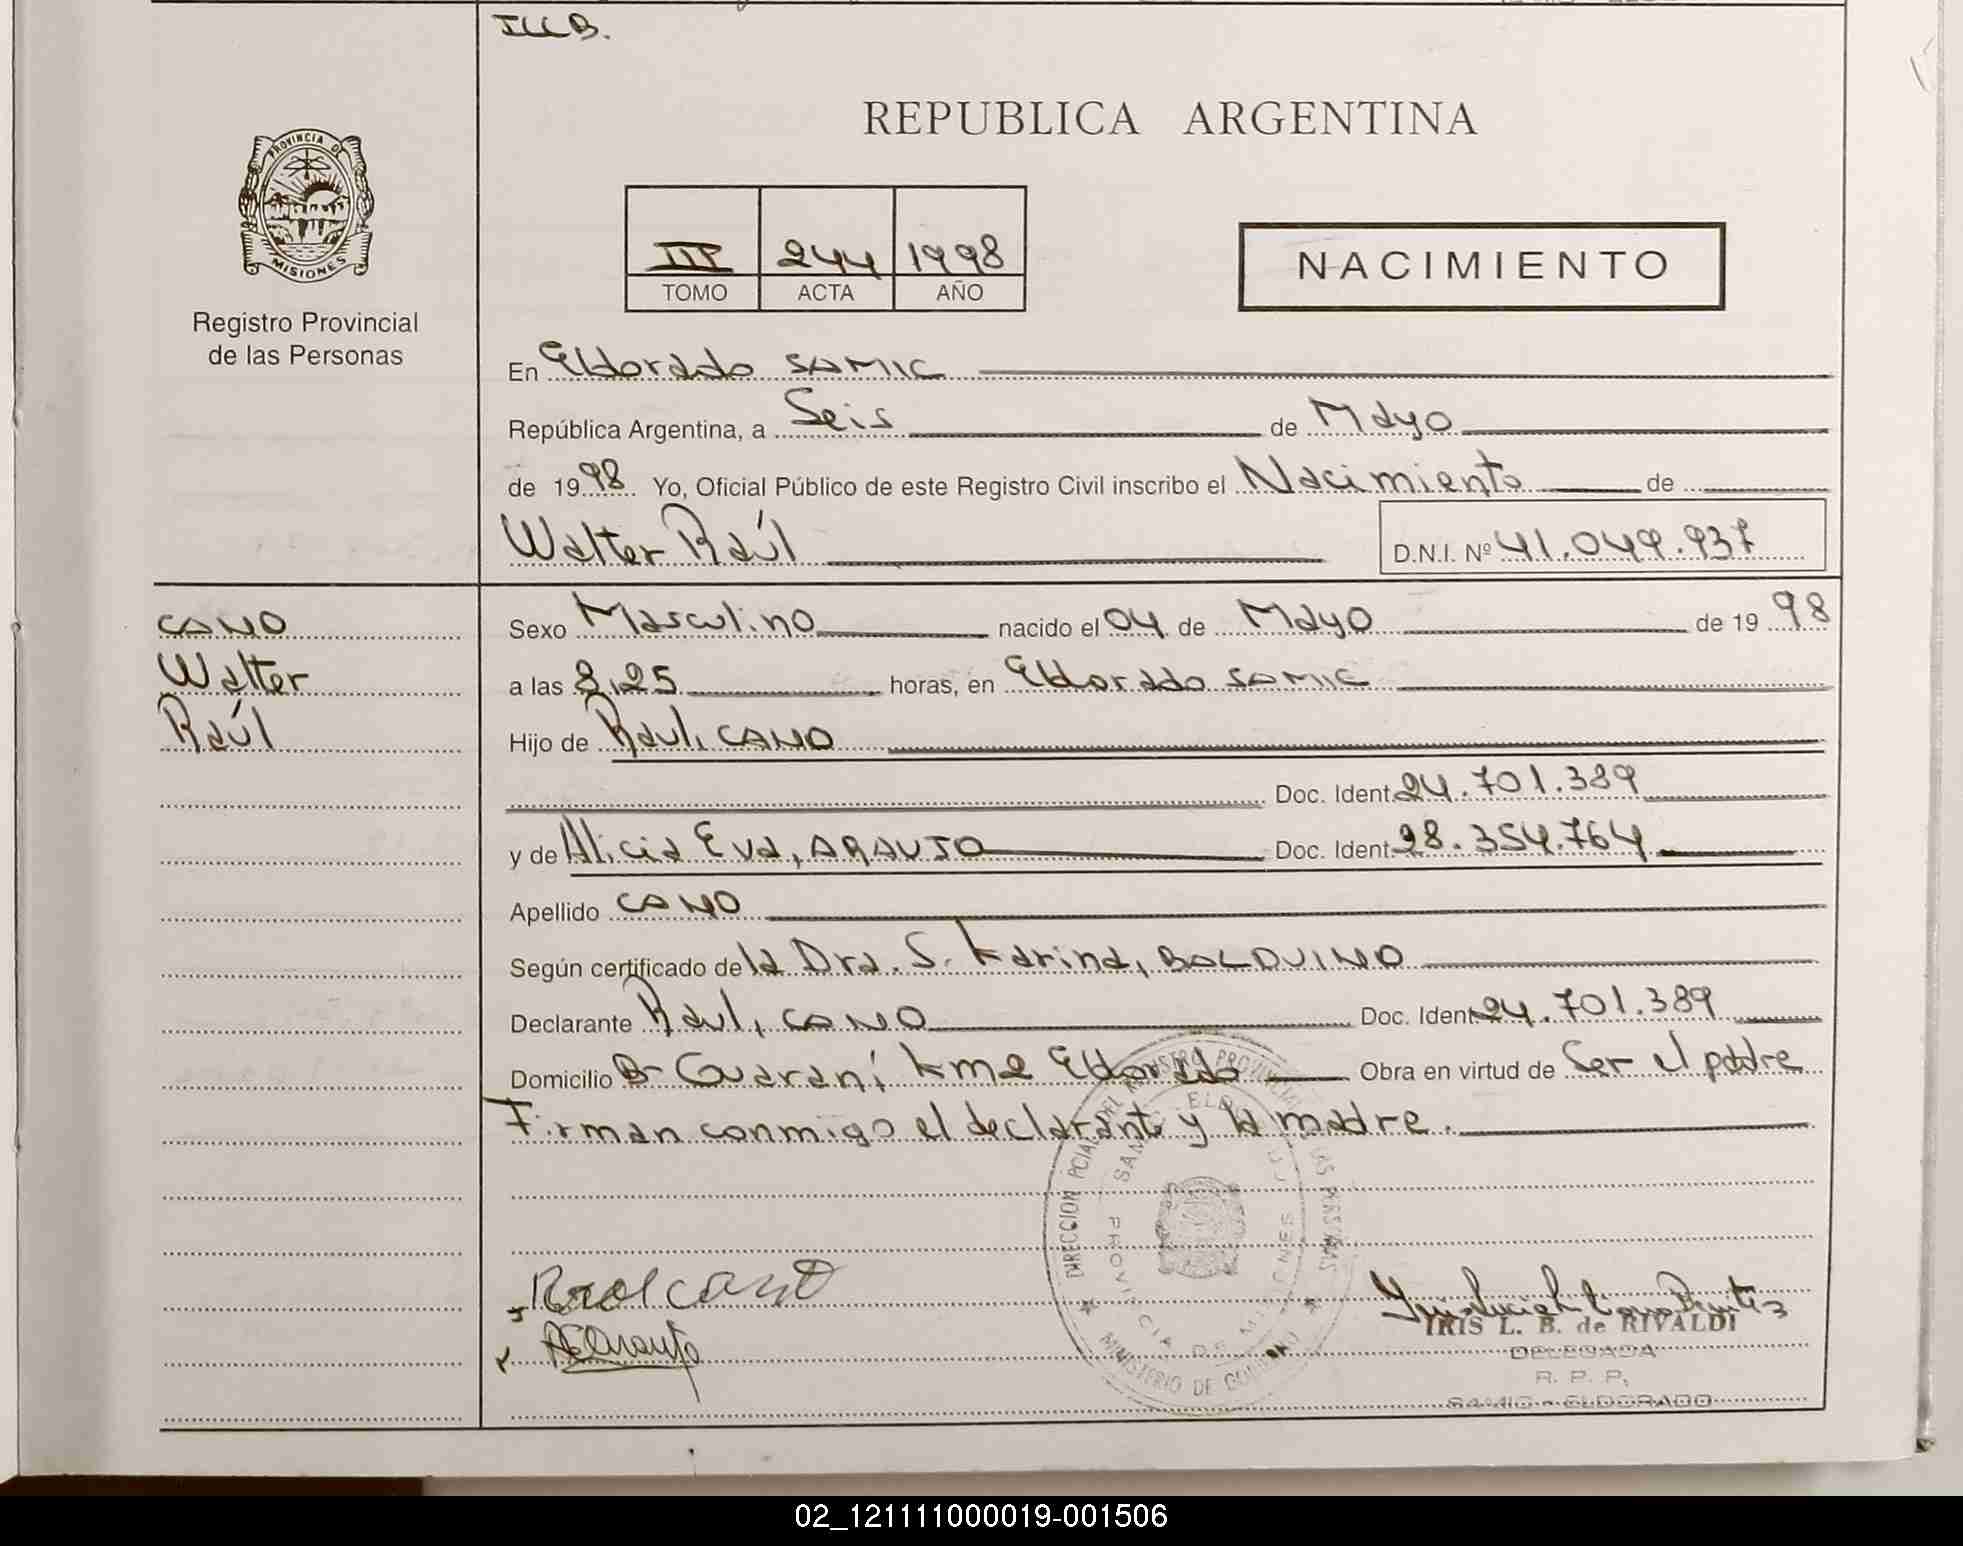 ILLB.
REPUBLICA ARGENTINA
PROVINCIA DE
MISIONES
III 244 1998
TOMO ACTA AÑO
NACIMIENTO
Registro Provincial
de las Personas
En Eldorado SAMIC
República Argentina, a Seis de Mayo
de 1998 Yo, Oficial Público de este Registro Civil inscribo el Nacimiento de
Walter Raúl D.N.I. Nº 41.049.937
CANO
Walter
Raúl
Sexo Masculino nacido el 04 de Mayo de 1998
a las 8,25 horas, en Eldorado SAMIC
Hijo de Raul, CANO
Doc. Ident. 24.701.389
y de Alicia Eva, ARAUJO Doc. Ident. 28.354.764
Apellido CANO
Según certificado de la Dra. S. Karina, BOLDUINO
Declarante Raul, CANO Doc. Ident. 24.701.389
Domicilio Bº Guaraní km2 Eldorado Obra en virtud de Ser el padre
Firman conmigo el declarante y la madre.
DIRECCION PCIAL DEL REGISTRO PROVINCIAL DE LAS PERSONAS
MINISTERIO DE GOBIERNO
PROVINCIA DE MISIONES
Raul Cano
AEAraujo
IRIS L. B. de RIVALDI
DELEGADA
R. P. P.
SAMIC - ELDORADO
02_121111000019-001506